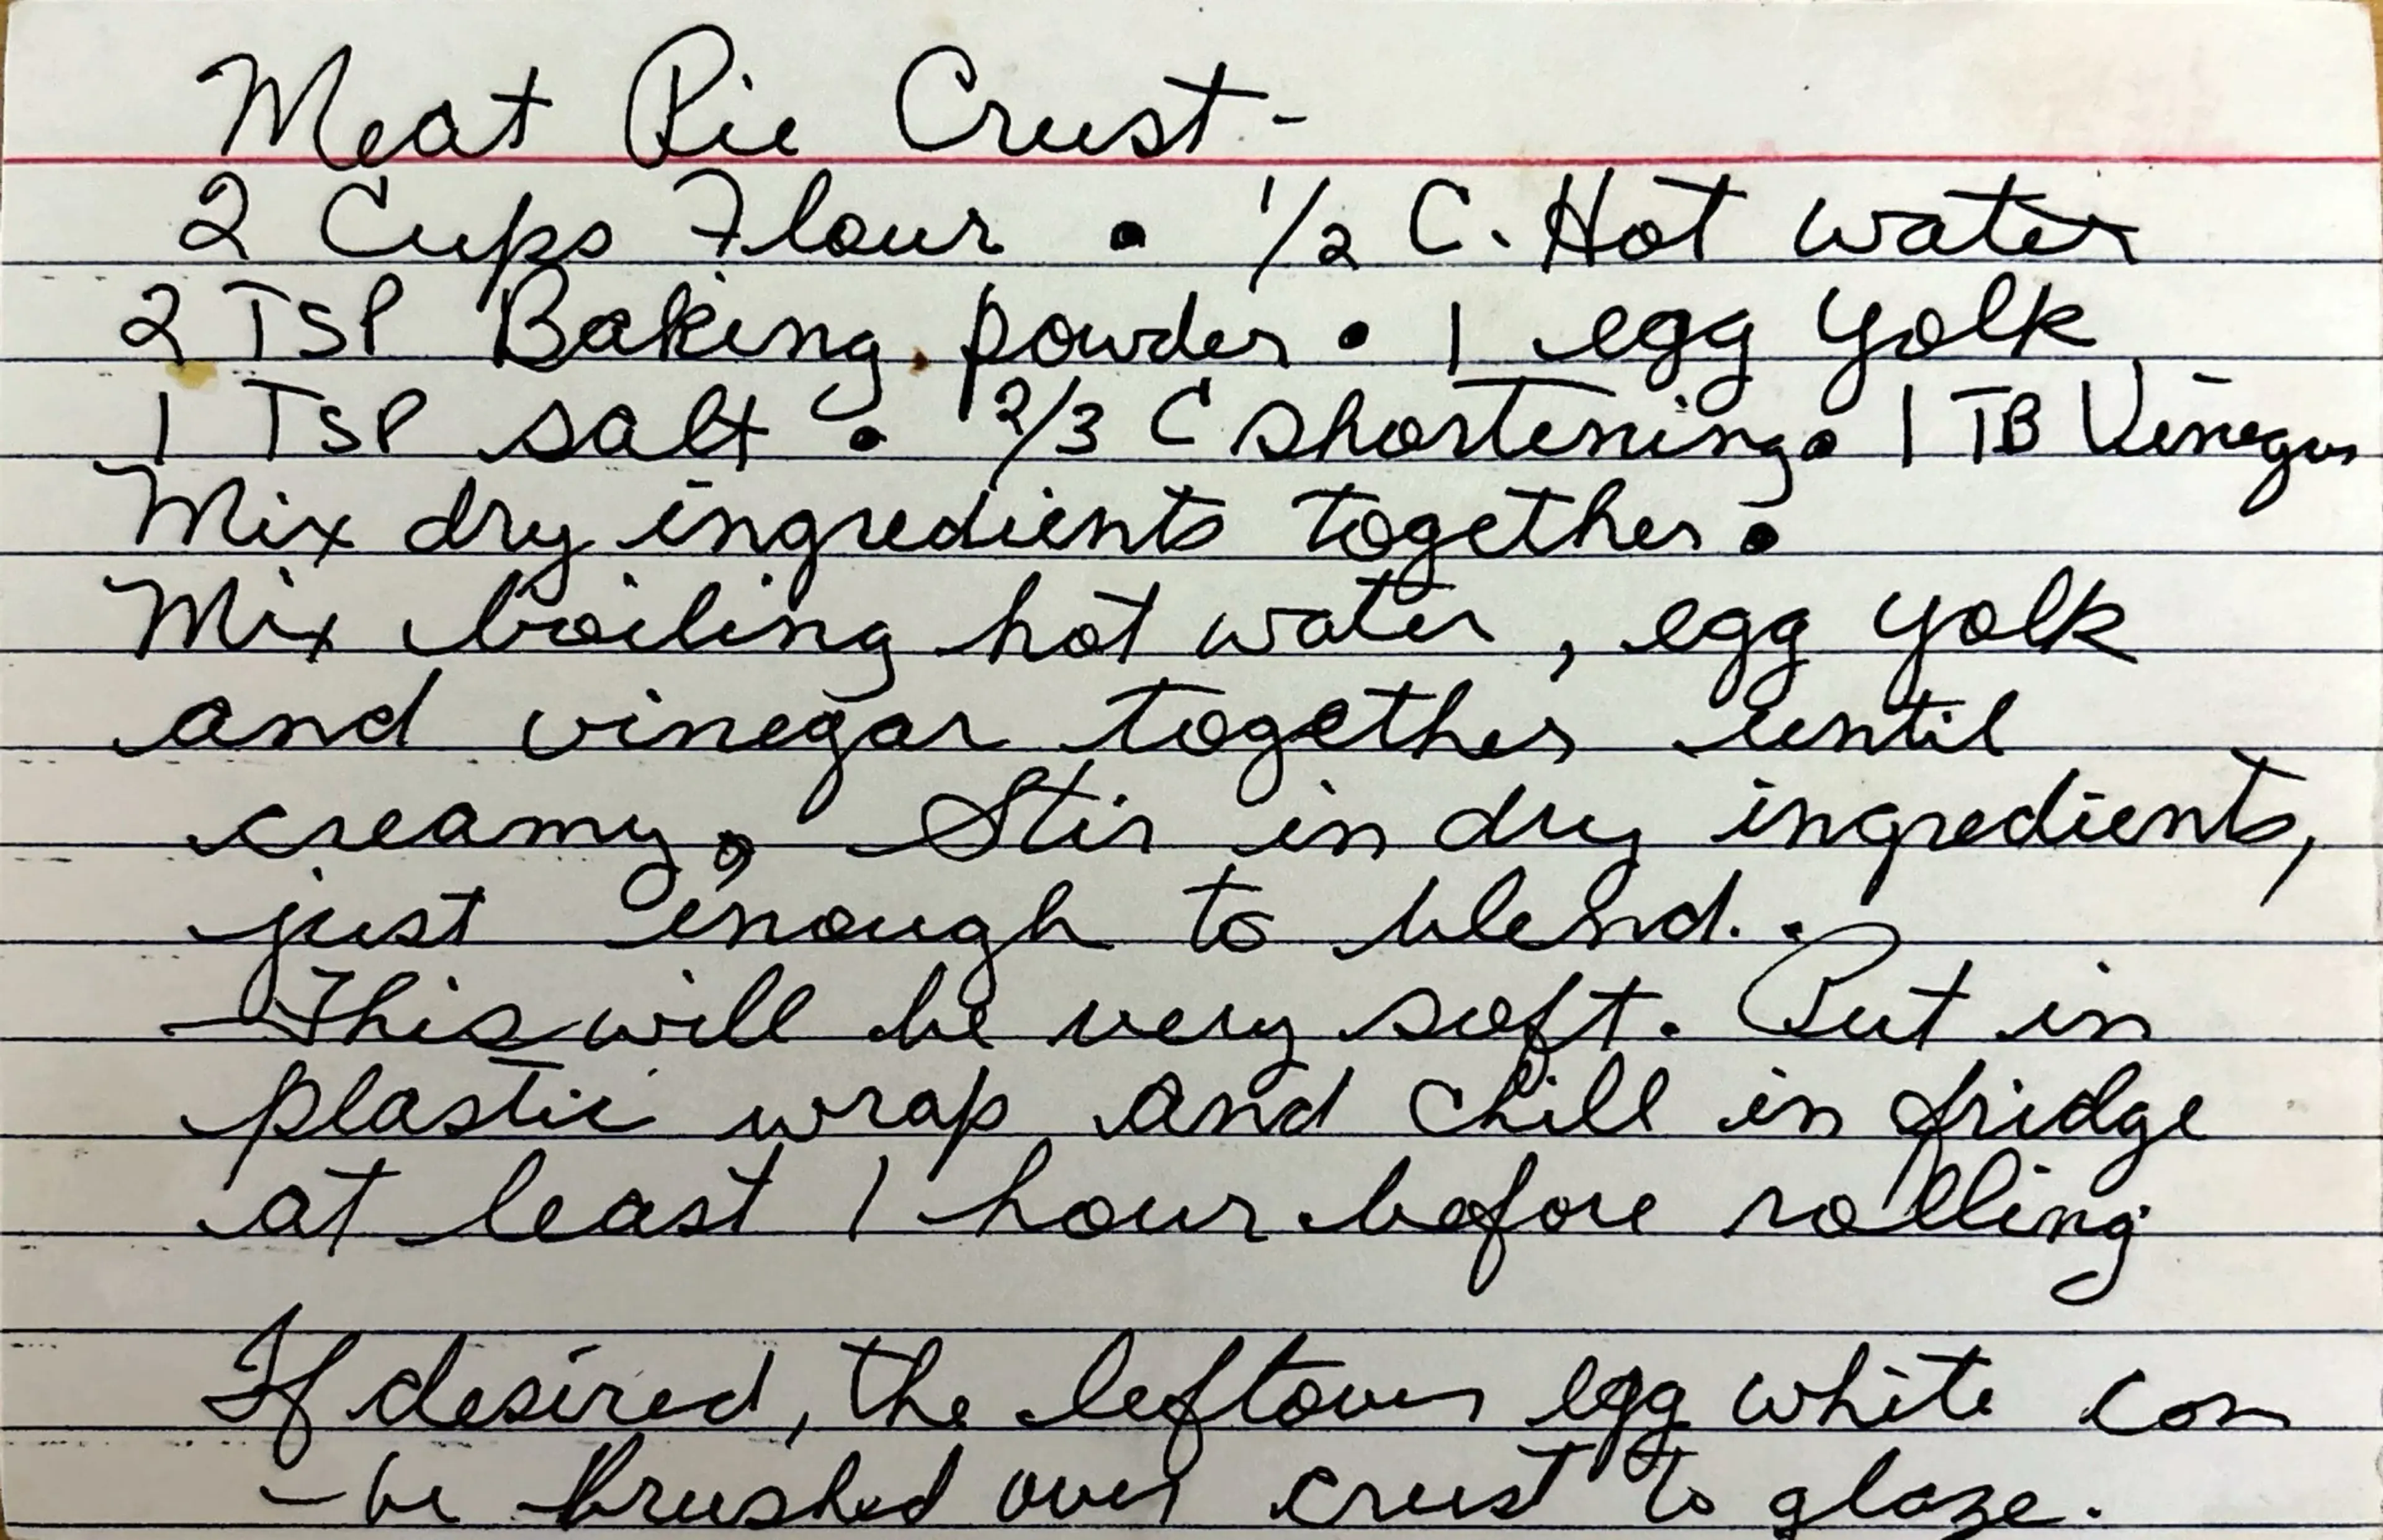 Meat Pie Crust-
2 Cups Flour • 1/2 C. Hot water
2 TSP Baking powder • 1 egg yolk
1 TSP salt • 2/3 C shortening • 1 TB Vinegar
Mix dry ingredients together.
Mix boiling hot water, egg yolk
and vinegar together until
creamy, Stir in dry ingredients,
just enough to blend..
This will be very soft. Put in
plastic wrap and chill in fridge
at least 1 hour before rolling
If desired, the leftover egg white can
be brushed over crust to glaze.